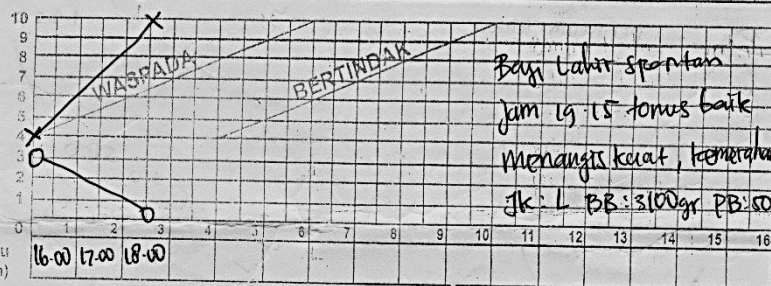 10
9
8
WASPADA
BERTINDAK
Bayi Lahir Spontan
7
6
5
Jam 19 15 tonus baik
4
3
Menangis kuat, kemeraha
2
1
JK: L BB: 3100gr PB: 50
0
1 2 3 4 5 6 7 8 9 10 11 12 13 14 15 16
16.00 17.00 18.00